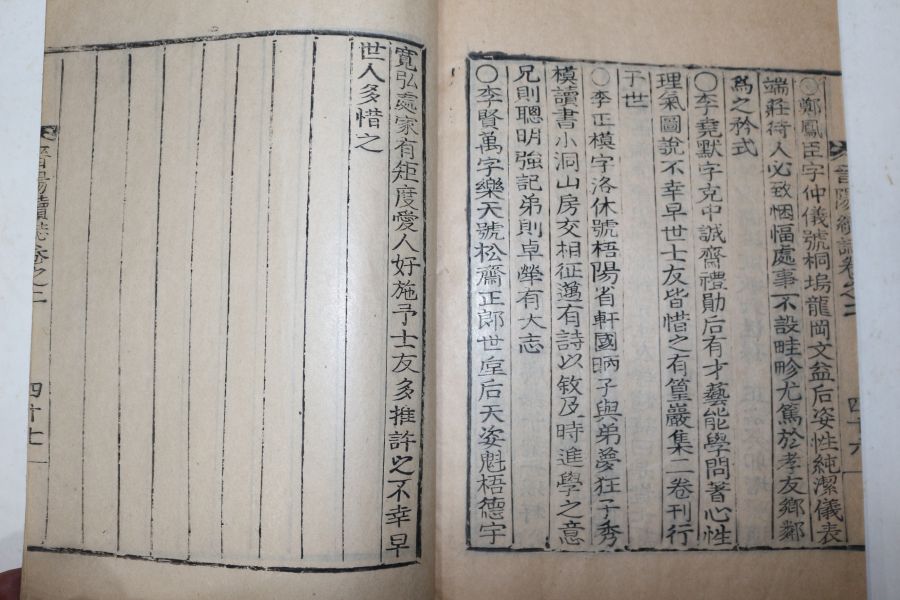 晉陽續誌卷之二
四十六
○鄭鳳臣字仲儀號桐塢龍岡文盆后姿性純潔儀表
端莊待人必致悃愊處事不設畦畛尤篤於孝友鄉鄰
爲之矜式
○李堯默字克中誠齋禮勛后有才藝能學問著心性
理氣圖說不幸早世士友皆惜之有篁巖集二卷刊行
于世
○李正模字洛休號梧陽省軒國眪子與弟夢狂子秀
模讀書小洞山房交相征邁有詩以敘及時進學之意
兄則聰明強記弟則卓犖有大志
○李賢萬字樂天號松齋正郎世垕后天姿魁梧德宇
寬弘處家有矩度愛人好施予士友多推許之不幸早
世人多惜之
晉陽續誌卷之二
四十七